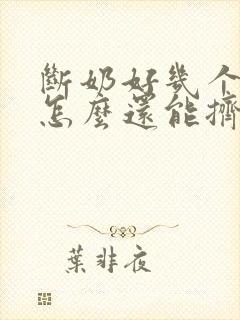 斷奶好幾个
怎麼還能擠
葉非夜